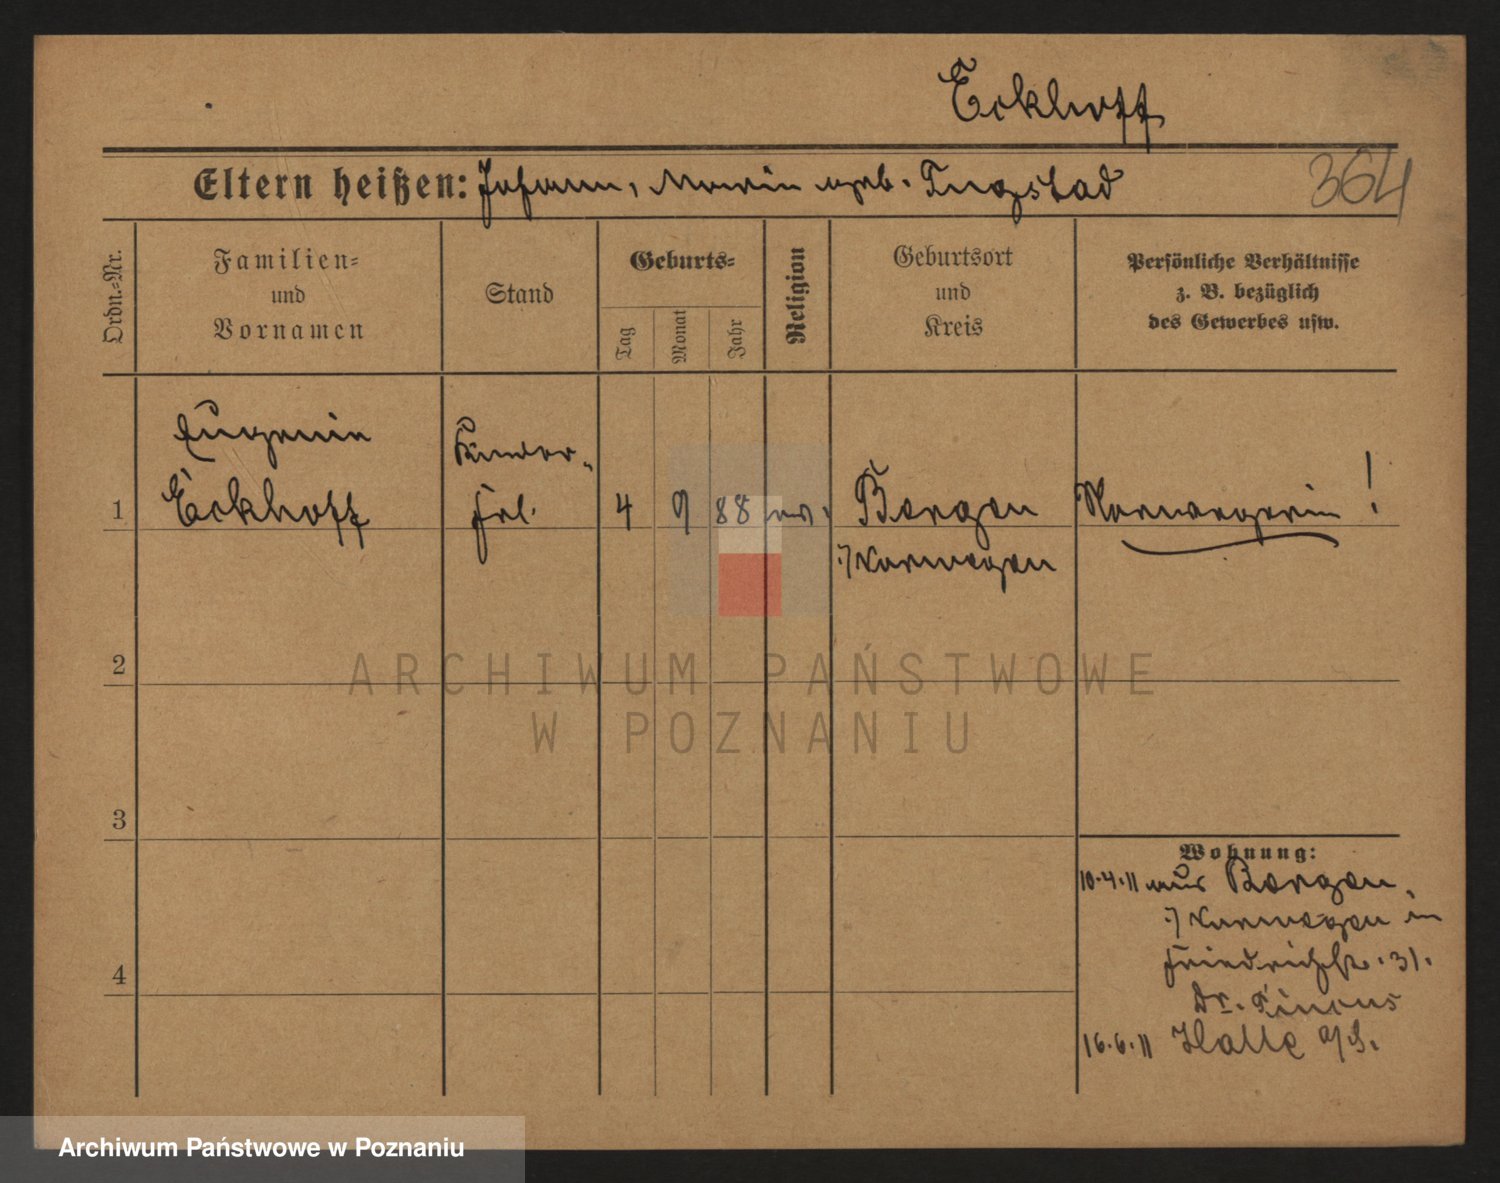 Eckhoff
Eltern heißen: Johann, Marie geb. Tugstad
364
Ordn.=Nr.
Familien=
und
Vornamen
Stand
Geburts=
Tag
Monat
Jahr
Religion
Geburtsort
und
Kreis
Persönliche Verhältnisse
z. B. bezüglich
des Gewerbes usw.
Eugenie
Eckhoff
Kinder-
frl.
1
4
9
88
ev.
Bergen
Norwegen
Norwegerin!
2
3
4
Wohnung:
10.4.11 aus Bergen,
Norwegen in
Friedrichstr. 31.
Dr. Pincus
16.6.11 Halle a/S.
ARCHIWUM PAŃSTWOWE
W POZNANIU
Archiwum Państwowe w Poznaniu